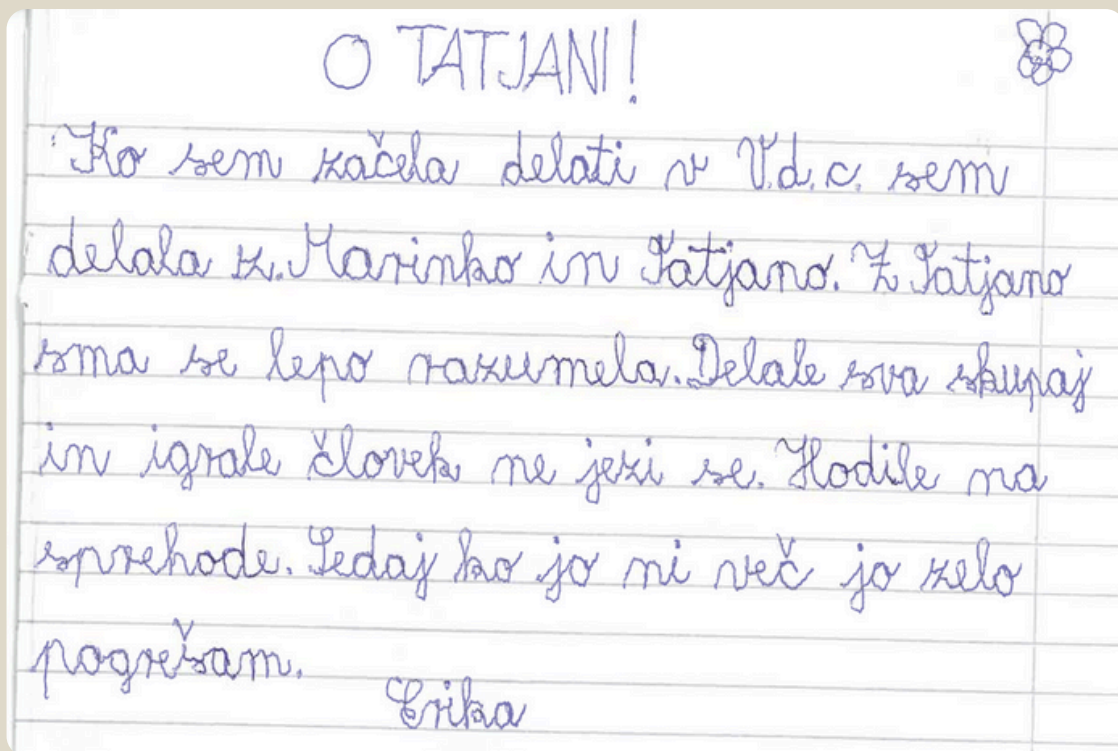 O TATJANI!
Ko sem začela delati v V.d.c. sem
delala z. Marinko in Tatjano. Z Tatjano
sma se lepo razumela. Delale sva skupaj
in igrale človek ne jezi se. Hodile na
sprehode. Sedaj ko jo ni več jo zelo
pogrešam.
Erika